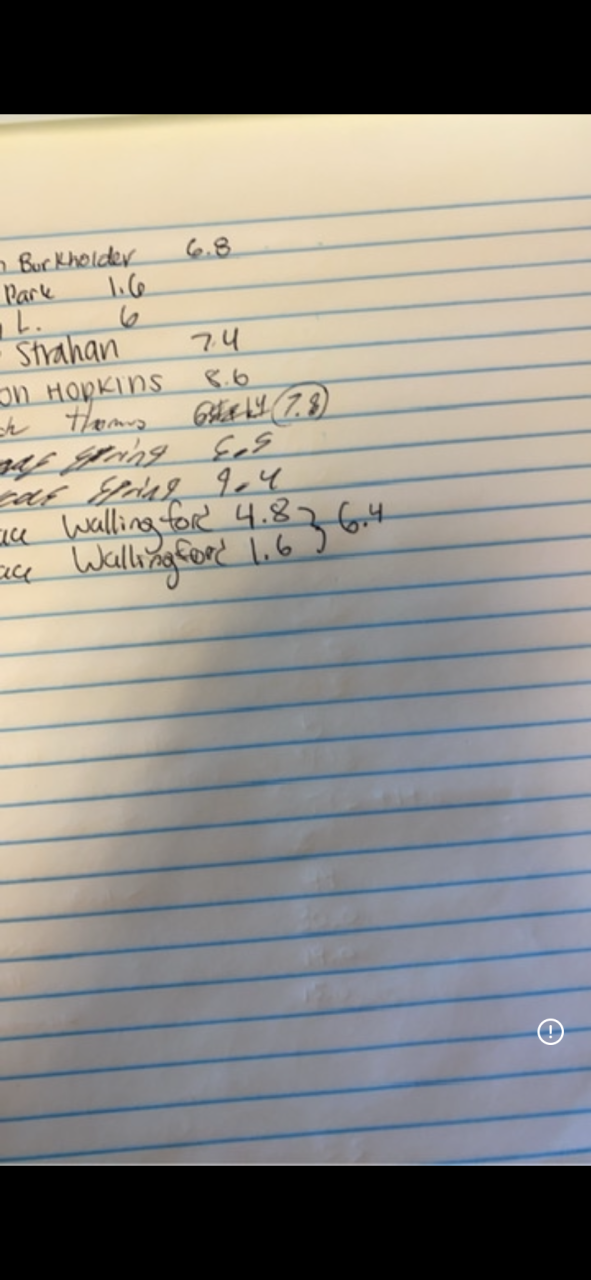 n Burkholder 6.8
Park 1.6
L. 6
Strahan 7.4
on HOPKINS 8.6
Thomas (7.8)
Spring
Spring 9.4
ace Wallingford 4.8 } 6.4
ace Wallingford 1.6